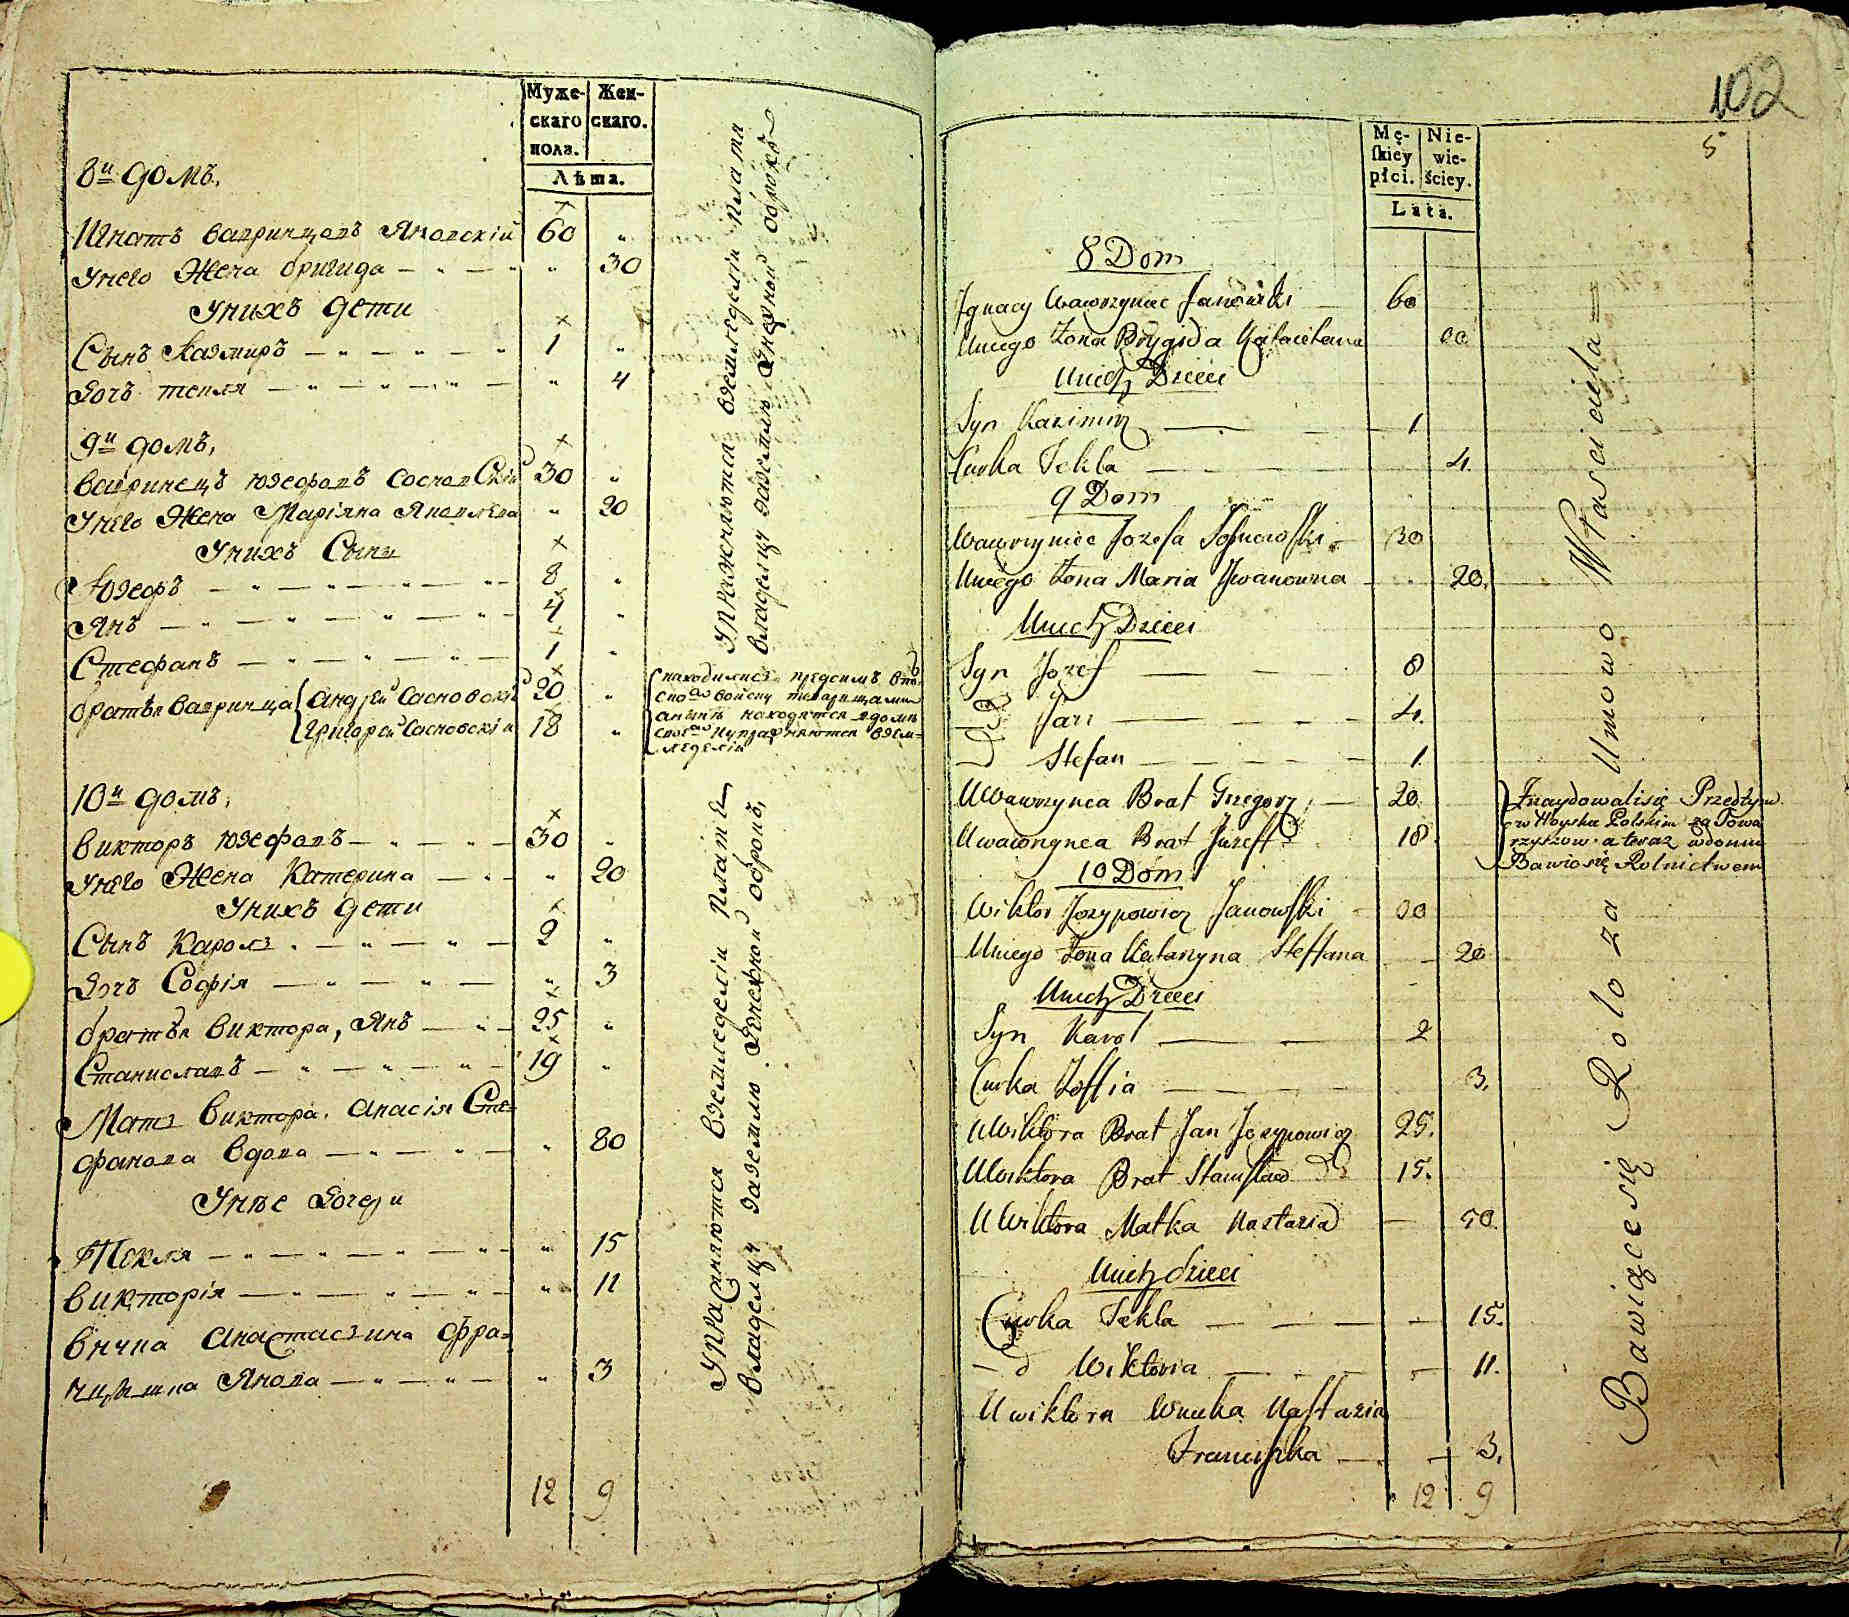 Муже-
скаго
пола.
Жен-
скаго.
Лѣта.
8й домъ,
Игнатъ Вавринцовъ Яновскій 60 "
У него Жена Бригида 30
У нихъ дети
Сынъ Казмиръ 1 "
Дочъ Текля " 4
9й домъ,
Вавринецъ Юзефовъ Сосновскій 30 "
У него Жена Маріяна Яновлева " 20
У нихъ Сыны
Юзефъ 8 "
Янъ 4 "
Стефанъ 1 "
братья Вавринца Андрей Сосновскій 20 "
Григорей Сосновскій 18 "
находились предсимъ в поль
ско войску товарищами
а нынѣ находятся в доме
своемъ и упражняются в зем-
леделіи
10й домъ,
Викторъ Юзефовъ 30 "
У него Жена Катерина " 20
У нихъ дети
Сынъ Каролъ 2 "
Дочъ Софія " 3
братья Виктора, Янъ 25 "
Станиславъ 19 "
Мать Виктора, Анасія Сте-
фанова вдова " 80
У нее Дочери
Текля " 15
Викторія " 11
Внучка Анастасіина Фра-
нцишка Янова " 3
12 9
Упражняются в земледеліи платя
владельцу за землю Денежной оброкъ
Упражняются в земледеліи платя
владельцу за землю Денежной оброкъ,
102
5
Mę-
skiey
płci.
Nie-
wie-
ściey.
Lata.
8 Dom
Jgnacy Wawrzyniec Janowski 60
U niego Zona Brygida 30
U nich Dzieci
Syn Kazimirz 1
Curka Tekla 4.
9 Dom
Wawrzyniec Jozefa Sosnowski 30
U niego Zona Maria Jwanowna 20.
U nich Dzieci
Syn Jozef 8
D Jan 4.
D Stefan 1.
U Wawrzynca Brat Grzegorz 20.
U Wawrzynca Brat Juzeff 18.
Znaydowalisię Przedtym
w Woysku Polskim za Towa
rzyszow a teraz w domu
Bawiosię Rolnictwem
10 Dom
Wiktor Jozypowicz Janowski 30
U niego Zona Katarzyna Steffana 20
U nich Dzieci
Syn Karol 2
Curka Zoffia 3.
U Wiktora Brat Jan Jozypowicz 25.
U Wiktora Brat Stanisław 15.
U Wiktora Matka Nastazia 50.
U nich dzieci
Curka Tekla 15.
D Wiktoria 11.
U Wiktora Wnuka Nastazia
Franciszka 3.
12 9
Bawiącesię Rolo za Umowo Własciciela